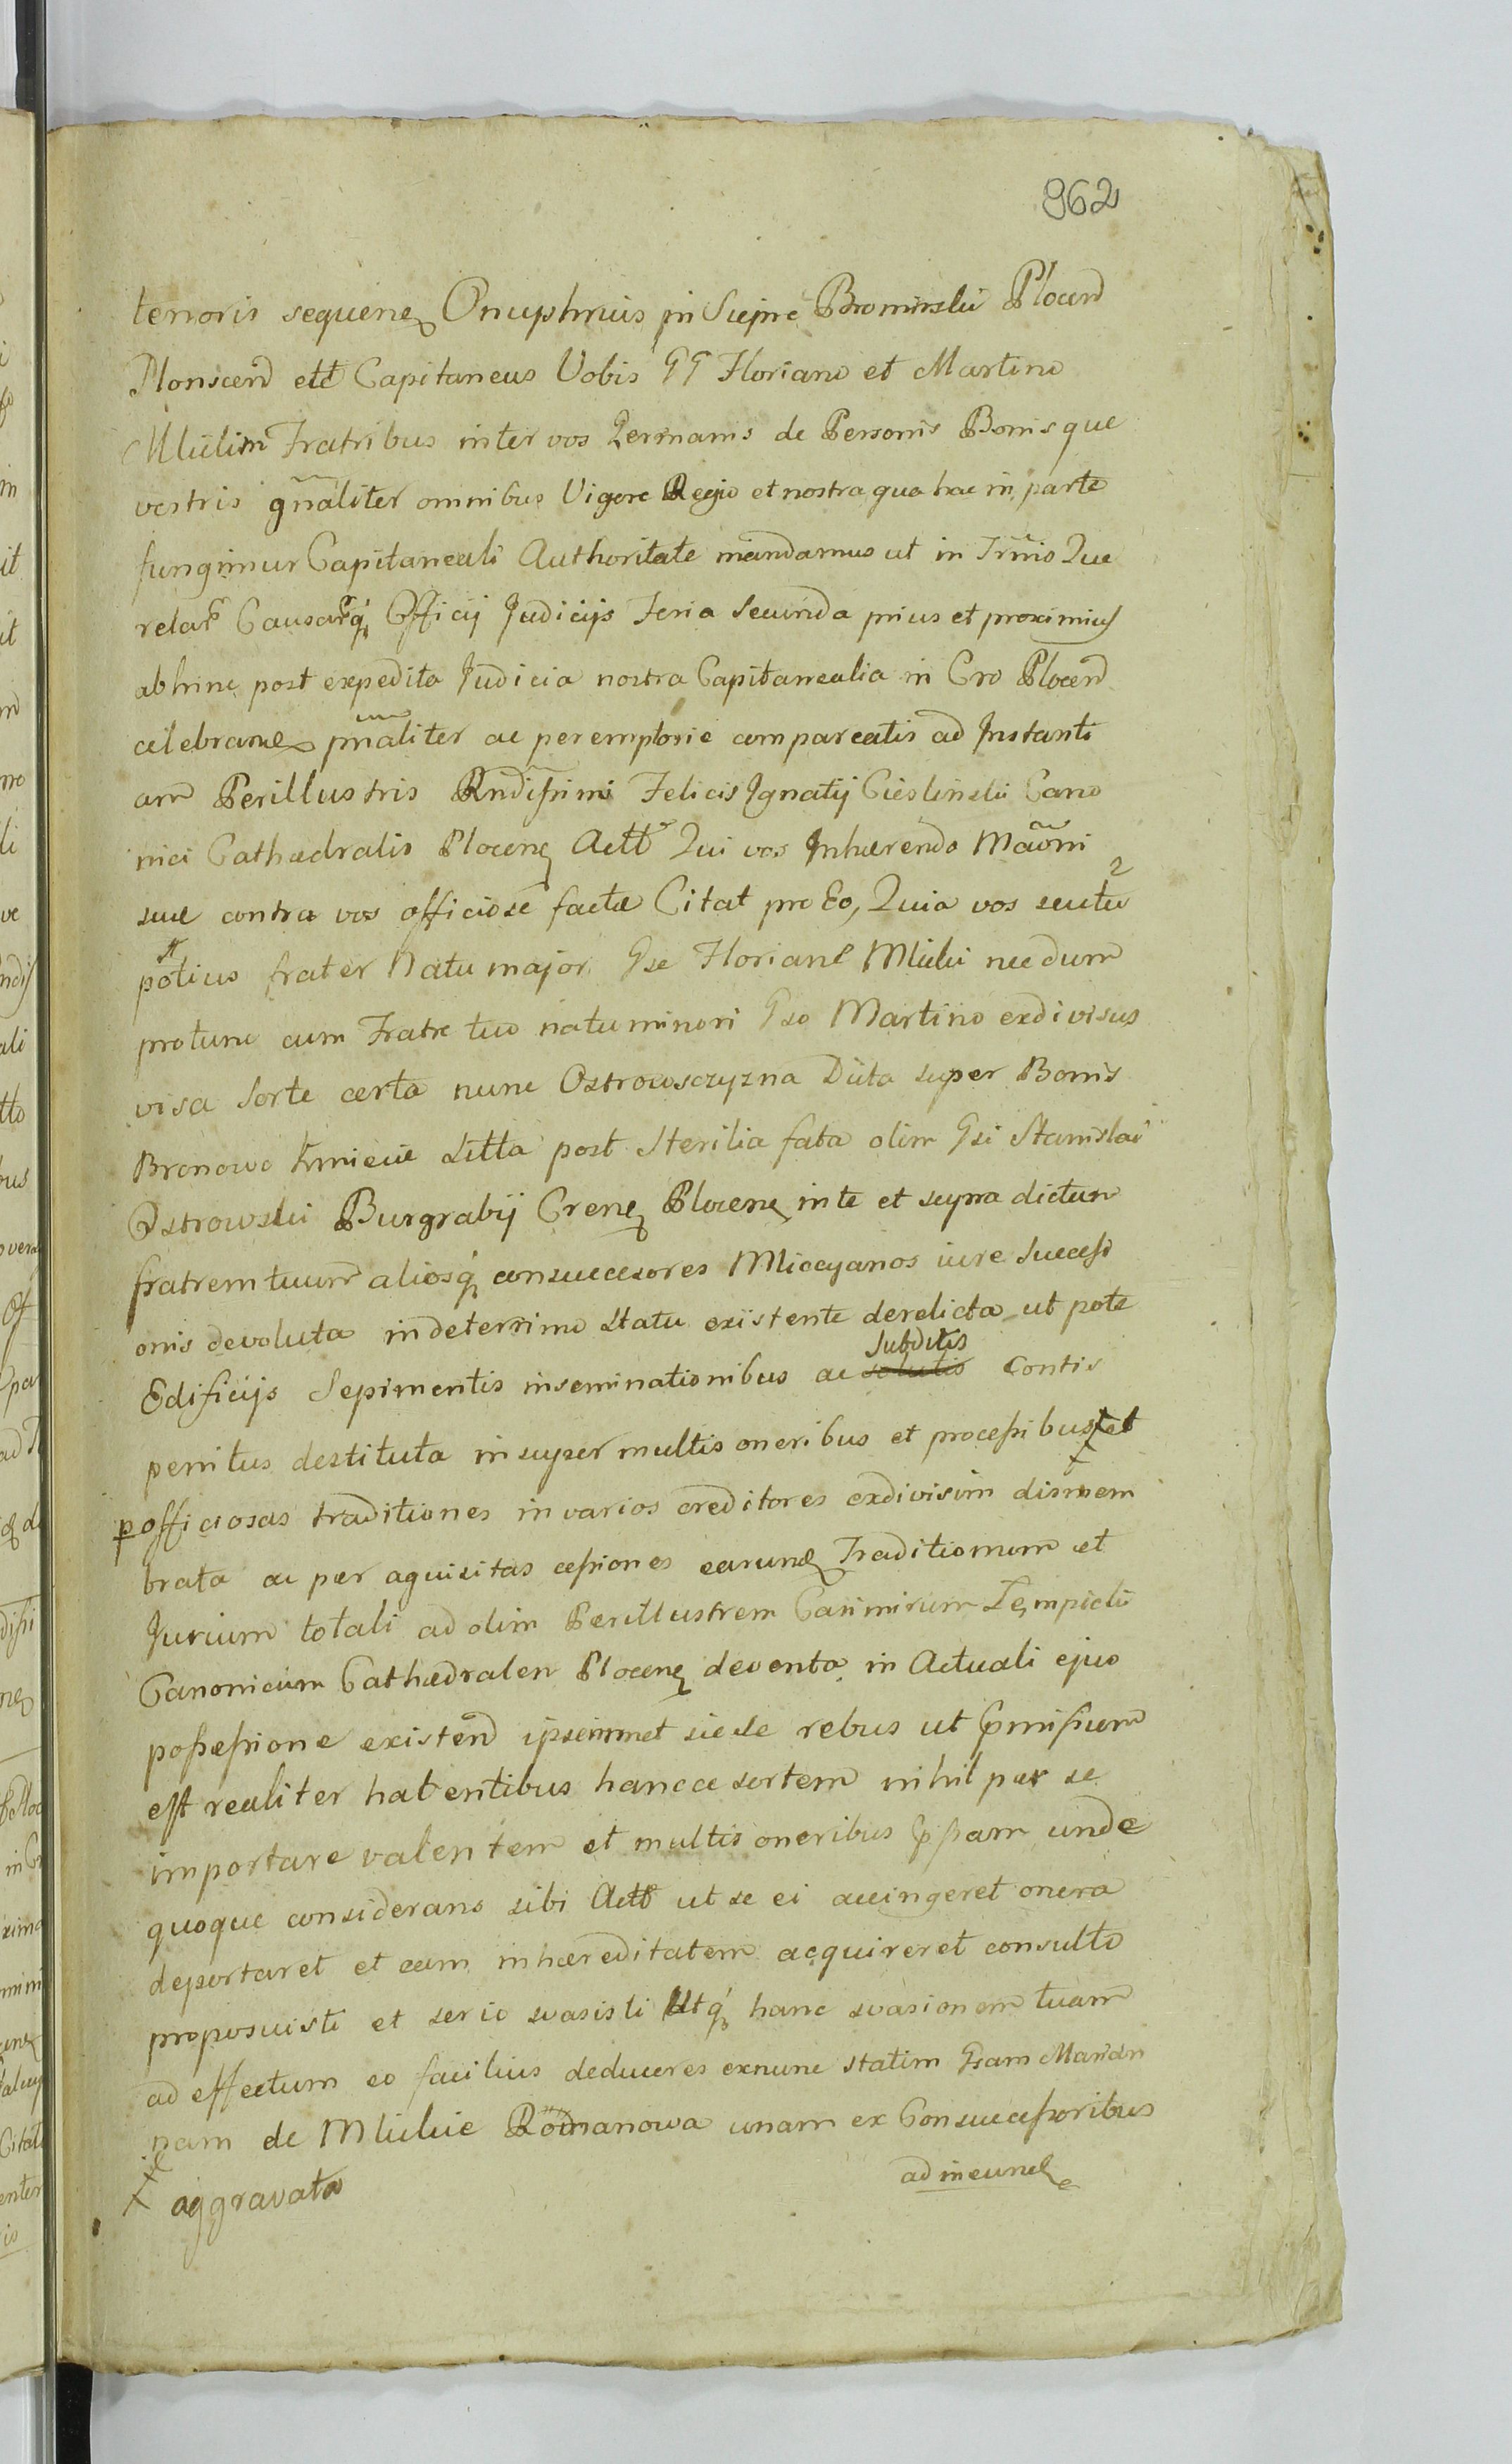 962
tenoris sequen Onuphrius in Siepre Bromirski Plocen
Plonscen ett Capitaneus Vobis GG Floriano et Martino
Mlickim Fratribus inter vos Germanis de Personis Bonisque
vestris gnaliter omnibus Vigore Regio et nostra qua hac in parte
fungimur Capitaneali Authoritate mandamus ut in Trnis Que
relar Causarq Officij Judicijs Feria Secunda prius et proximius
abhinc post expedita Judicia nostra Capitanealia in Cro Plocen
celebran pnaliter ac peremptorie compareatis ad Instanti
am Perillustris Rndissimi Felicis Ignatij Cieslinski Cano
nici Cathedralis Plocen Actt Qui vos Inhærendo Maoni
suæ contra vos officiose factæ Citat pro Eo, Quia vos seu tu
potius frater Natu major Gse Floriane Mlicki necdum
protunc cum Fratre tuo natu minori Gso Martino exdivisus
visa Sorte certa nunc Ostrowsczyzna Dicta super Bonis
Bronowo Kmiecie sitta post Sterilia fata olim Gsi Stanislai
Ostrowski Burgrabij Cren Plocen in te et supra dictum
fratrem tuum aliosq consuccesores Miccyanos iure Successi
onis devoluta in deterrimo statu existente derelicta ut pote
Subditis
Edificijs Sepimentis inseminationibus ac solutis Contis
penitus destituta insuper multis oneribus et processibus et
p officiosas traditiones in varios creditores exdivisim dismem
brata ac per aquisitas cessiones earun Traditionum et
Jurium totali ad olim Perillustrem Casimirum Lempicki
Canonicum Cathedralem Plocen deventa in Actuali ejus
possessione existen ipsemmet sicse rebus ut pmissum
est realiter habentibus hancce sortem nihil per se
importare valentem et multis oneribus ppssam unde
quoque considerans sibi Actt ut se ei accingeret onera
deportaret et eam in hæreditatem acquireret consulto
proposuisti et serio svasisti Utq hanc svasionem tuam
ad effectum eo facilius deduceres exnunc statim Gsam Marian
nam de Mlickie Romanowa unam ex Consuccessoribus
ad ineun
aggravata